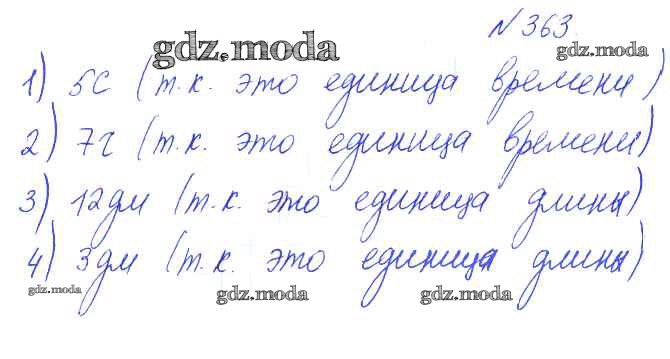 № 363.
gdz.moda gdz.moda
1) 5с (т.к. это единица времени)
2) 7г (т.к. это единица времени)
3) 12дм (т.к. это единица длины)
4) 3дм (т.к. это единица длины)
gdz.moda gdz.moda gdz.moda